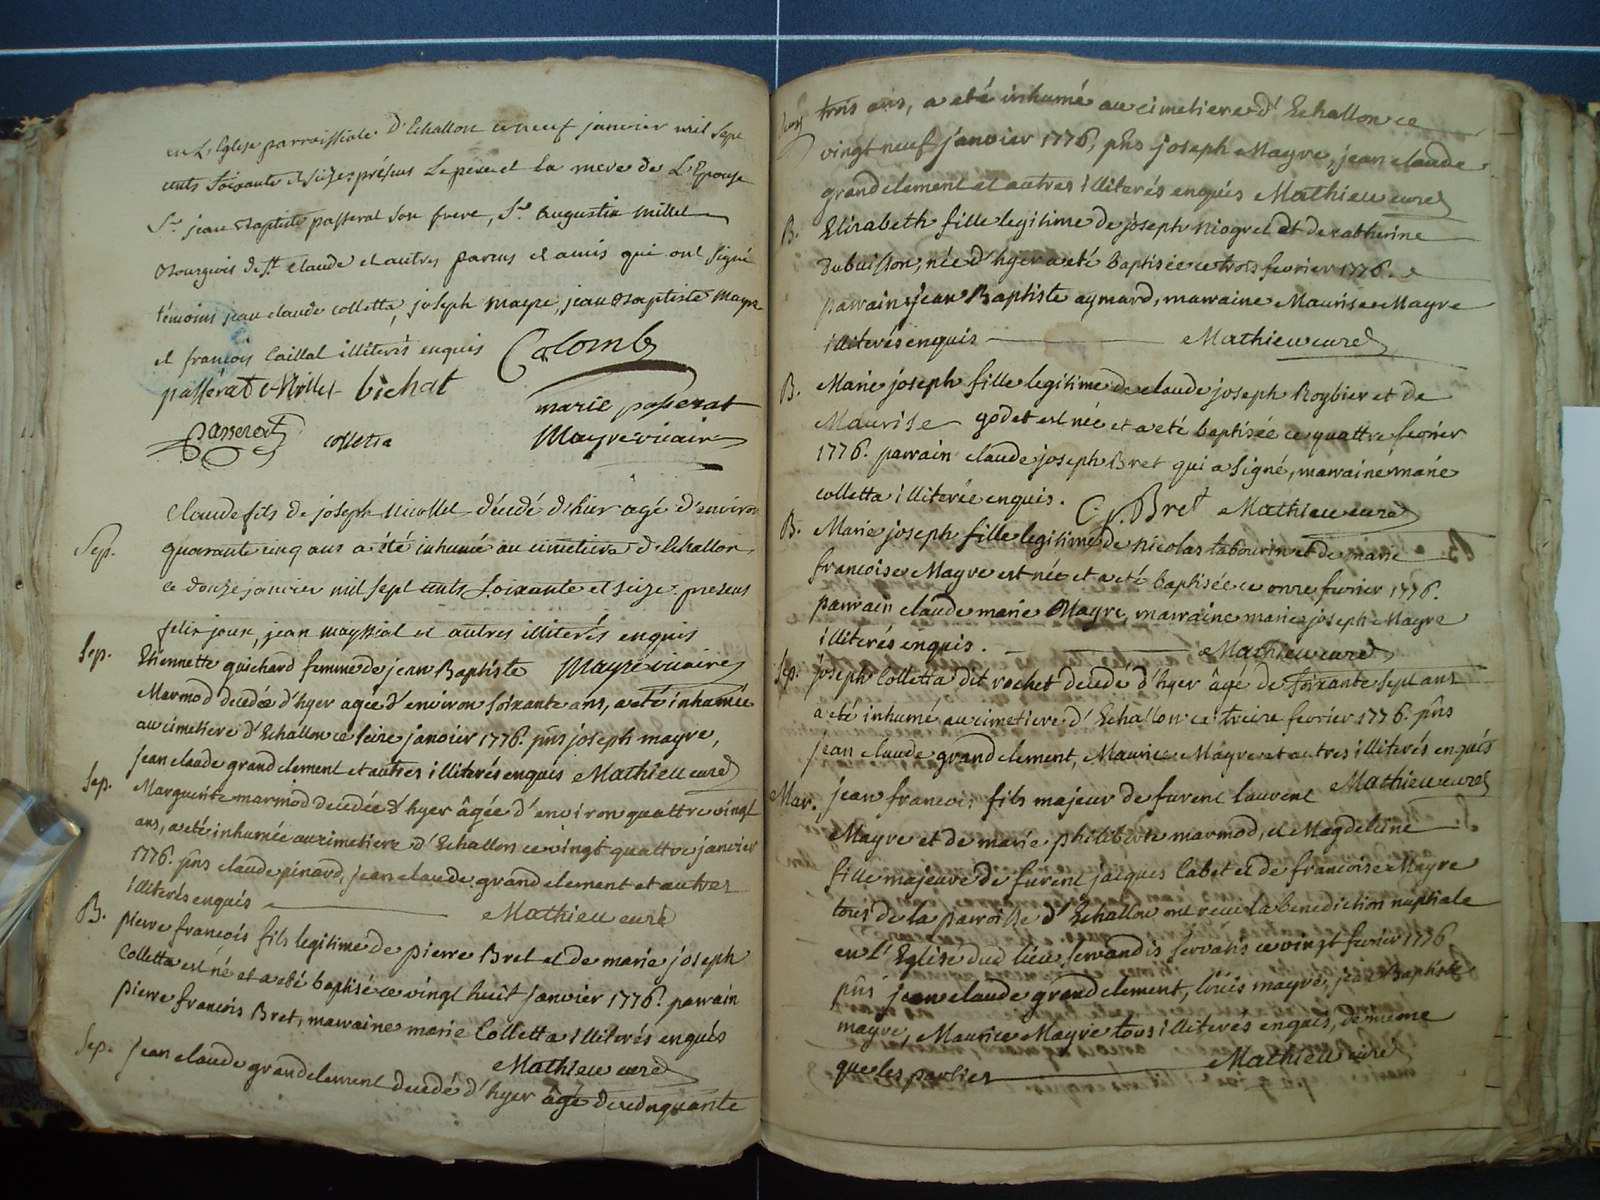 en L'Eglise parroissiale d'Echallon ce neuf janvier mil sept
cents soixante et seize présens Le pere et la mere de L'Epouse
Sr. jean Baptiste passerat son frere, Sr. Augustin Millet
Bourgeois de St. Claude et autres parens et amis qui ont signé
témoins jean claude colletta, joseph mayre, jean Baptiste Mayre
et françois Caillat illiterés enquis Colomb
passerat Millet bichat
marie passerat
Passerat colletta Mayre vicaire
Claude fils de joseph Nicollet décédé d'hier agé d'environ
Sep. quarante cinq ans a été inhumé au cimetiere d'Echallon
ce douze janvier mil sept cents soixante et seize presens
felix joux, jean mayssiat et autres illiterés enquis
Sep. Etiennette guichard femme de jean Baptiste Mayre vicaire
Marmod decedée d'hyer agée d'environ soixante ans, a eté inhumée
au cimetiere d'Echallon ce seize janvier 1776. pñs joseph mayre,
jean claude grandclement et autres illiterés enquis Mathieu curé
Sep. Marguerite marmod decedée d'hyer âgée d'environ quattre vingt
ans, a eté inhumée au cimetiere d'Echallon ce vingt quattre janvier
1776. pñs claude pinard, jean claude grandclement et autres
illiterés enquis Mathieu curé
B. pierre francois fils legitime de pierre Bret et de marie joseph
Colletta est né et a eté baptisé ce vingt huit janvier 1776. parrain
pierre francois Bret, marraine marie Colletta illiterés enquis
Mathieu curé
Sep. jean claude grandclement decedé d'hyer âgé de cinquante
trois ans, a eté inhumé au cimetiere d'Echallon ce
vingt neuf janvier 1776, pñs joseph Mayre, jean claude
grandclement et autres illiterés enquis Mathieu curé
B. Elisabeth fille legitime de joseph niogret et de catherine
Dubuisson, née d'hyer a eté baptisée ce trois fevrier 1776.
parrain jean Baptiste aymard, marraine Maurise Mayre
illiterés enquis Mathieu curé
B. Marie joseph fille legitime de claude joseph Roybier et de
Maurise godet est née et a eté baptisée ce quattre fevrier
1776. parrain claude joseph Bret qui a signé, marraine marie
colletta illiterée enquis. C. j. Bret Mathieu curé
B. Marie joseph fille legitime de nicolas tabourin et de marie
francoise Mayre est née et a eté baptisée ce onze fevrier 1776.
parrain claude marie Mayre, marraine marie joseph Mayre
illiterés enquis. Mathieu curé
Sep. joseph Colletta dit rochet decedé d'hyer âgé de soixante sept ans
a eté inhumé au cimetiere d'Echallon ce treize fevrier 1776. pñs
jean claude grandclement, Maurice Mayre et autres illiterés enquis
Mar. jean francois fils majeur de furent laurent Mathieu curé
Mayre et de marie philiberte marmod, et Magdeleine
fille majeure de furent jacques Cabet et de francoise Mayre
tous de la parroisse d'Echallon ont recu la benediction nuptiale
en l'Eglise dud lieu, servandis servatis ce vingt fevrier 1776
pñs jean claude grandclement, loüis mayre, jean Baptiste
mayre, Maurice Mayre tous illiterés enquis, de meme
que les parties Mathieu curé